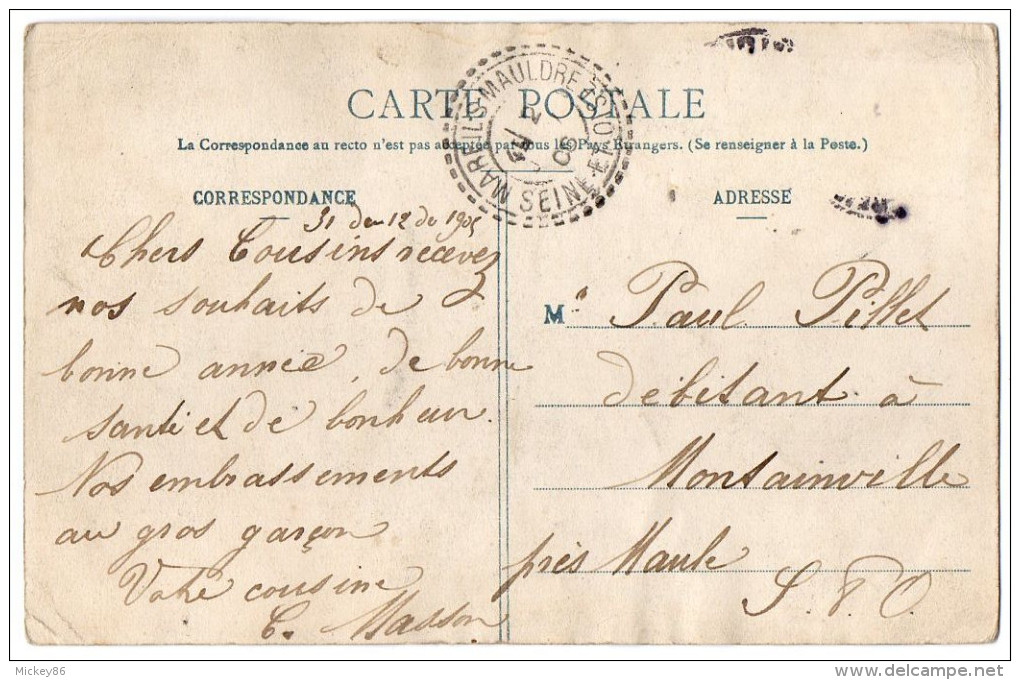 CARTE POSTALE
La Correspondance au recto n'est pas acceptée par tous les Pays Etrangers. (Se renseigner à la Poste.)
MAREIL-S-MAULDRE
SEINE-ET-OISE
2
06
CORRESPONDANCE
ADRESSE
31 du 12 de 1905
Chers Cousins recevez
nos souhaits de
bonne année, de bonne
santé et de bonheur.
Nos embrassements
au gros garçon
Votre cousine
C. Masson
M Paul Pillet
débitant à
Montainville
près Maule
S. & O.
Mickey86
www.delcampe.net